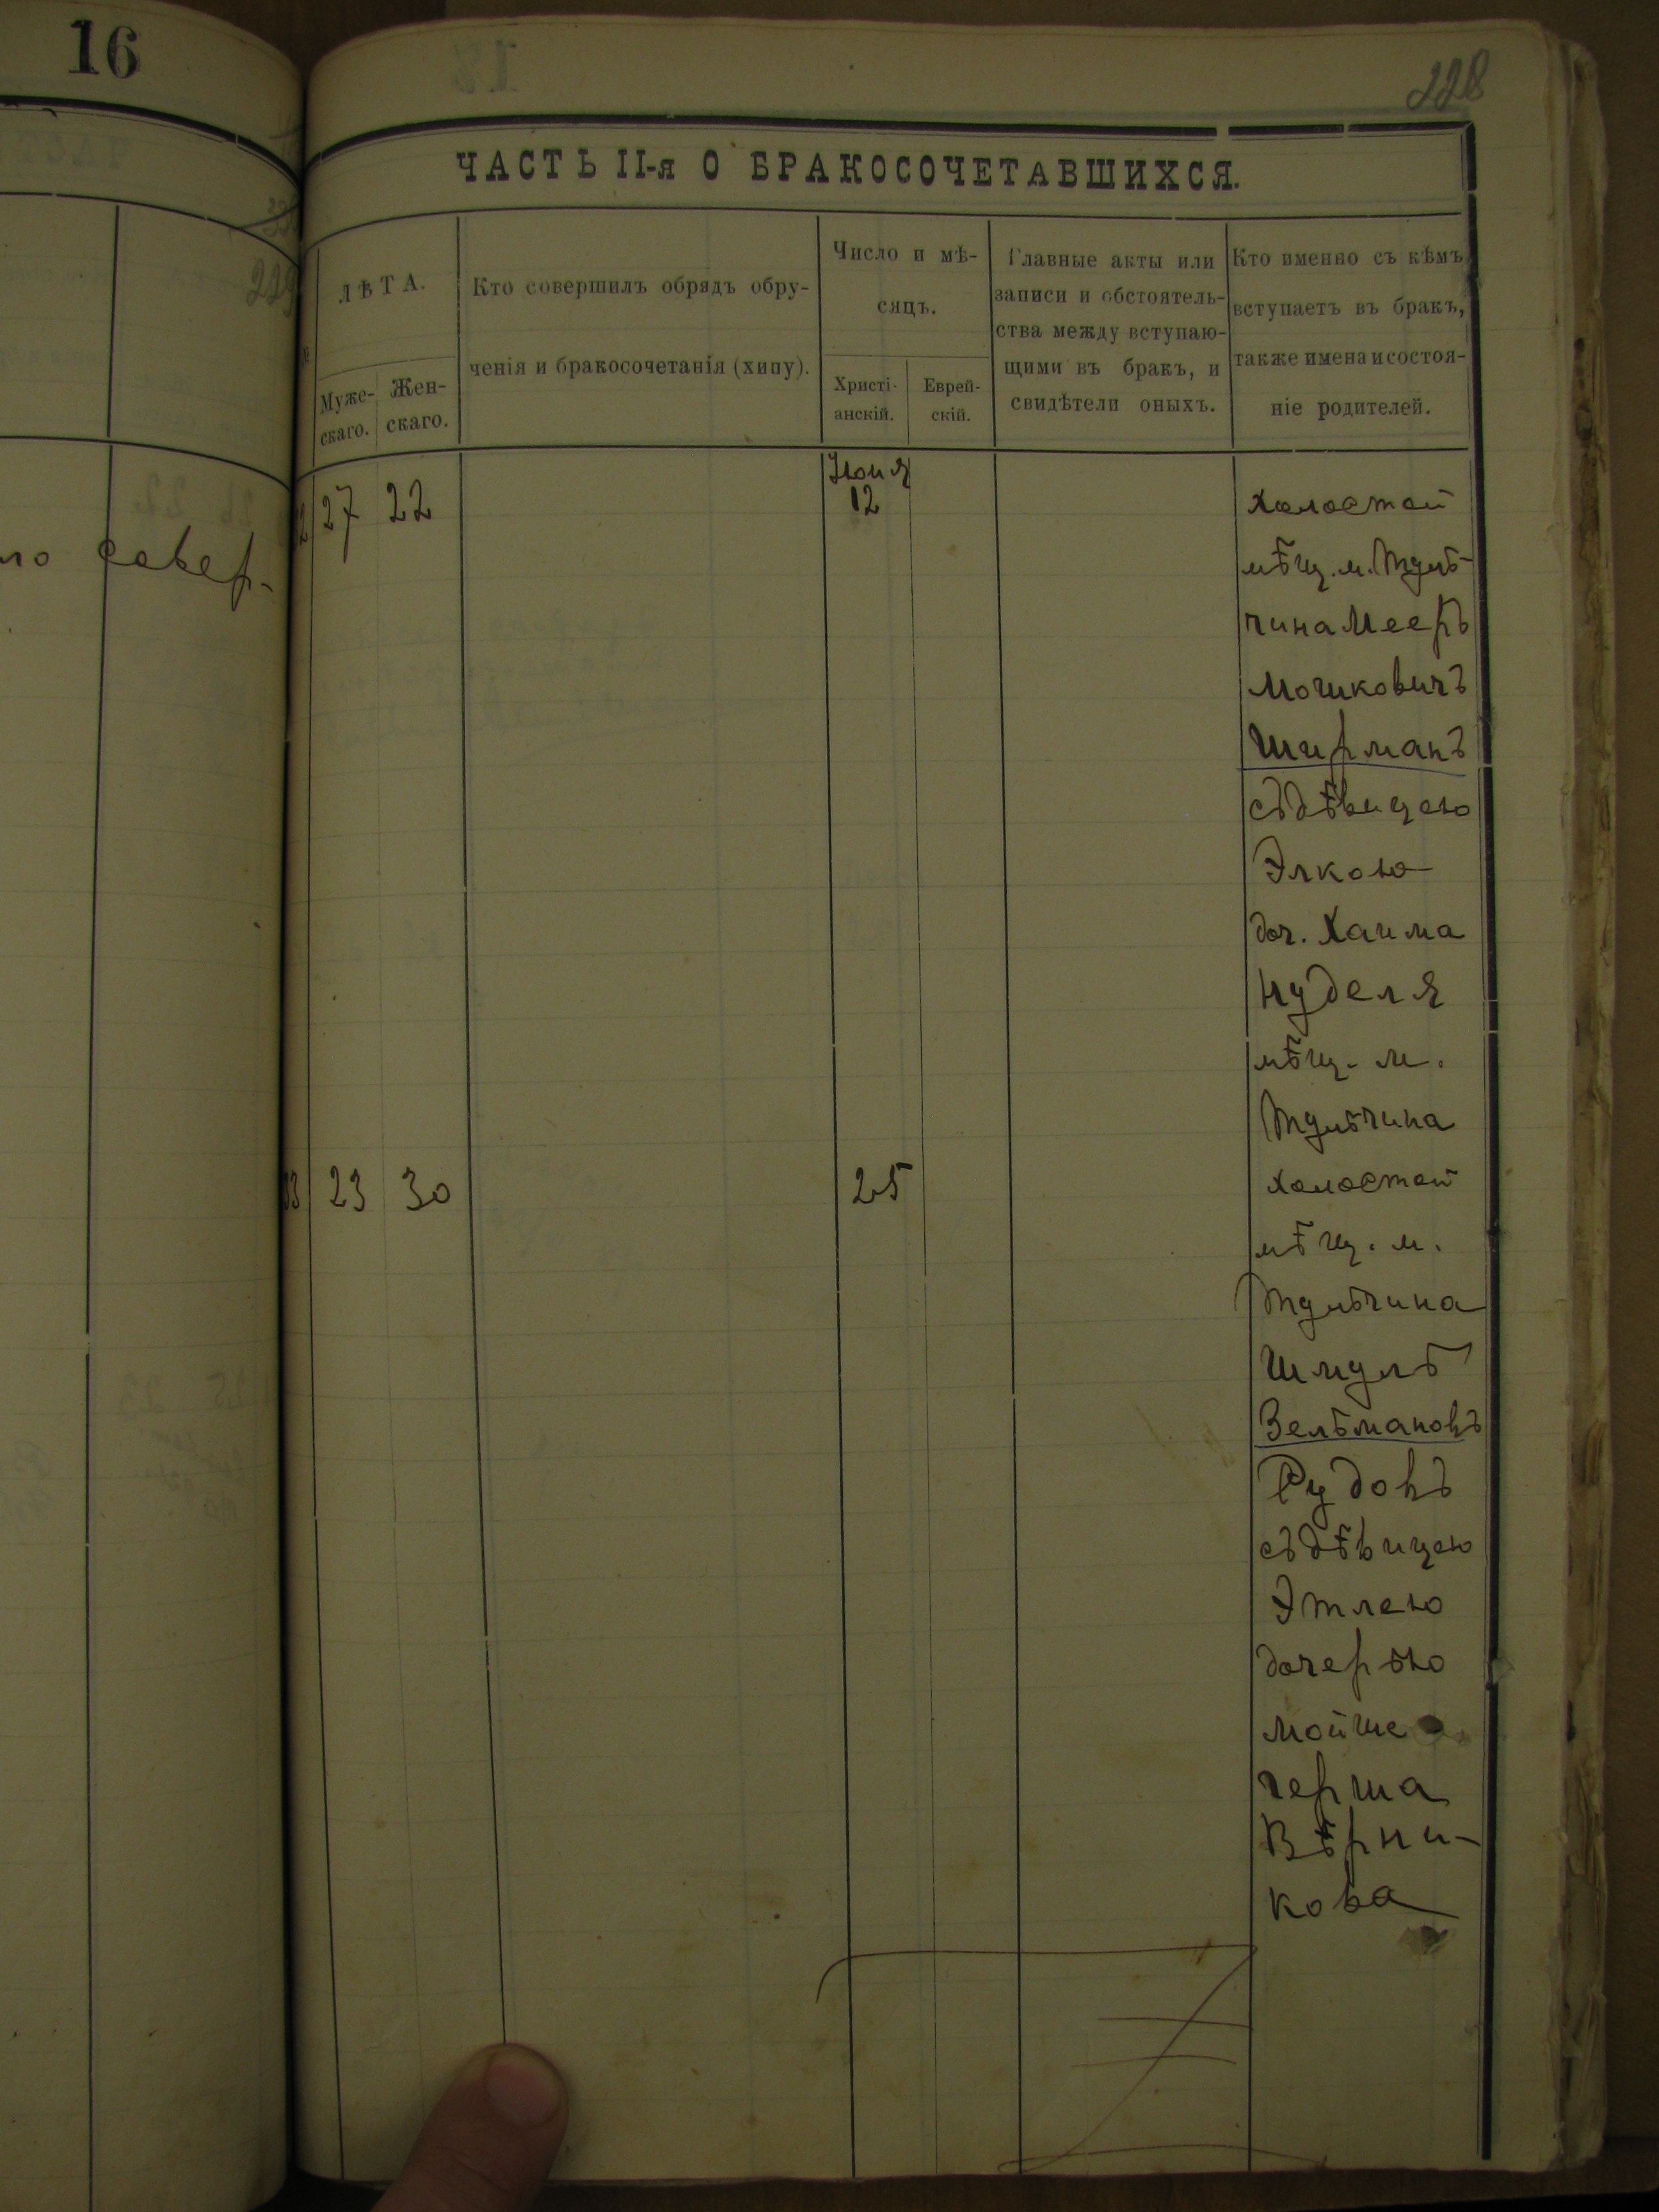 16
228
ЧАСТЬ II-я О БРАКОСОЧЕТАВШИХСЯ.
ЛѢТА.
Муже-
скаго.
Жен-
скаго.
Кто совершилъ обрядъ обру-
ченія и бракосочетанія (хипу).
Число и мѣ-
сяцъ.
Христі-
анскій.
Еврей-
скій.
Главные акты или
записи и обстоятель-
ства между вступаю-
щими въ бракъ, и
свидѣтели оныхъ.
Кто именно съ кѣмъ
вступаетъ въ бракъ,
также имена и состоя-
ніе родителей.
229
27 22
Іюня
12
Холостой
мѣщ. м. Туль-
чина Мееръ
Мошковичъ
Ширманъ
съ дѣвицею
Элкою
доч. Хаима
Нуделя
мѣщ. м.
Тульчина
33 23 30
25
Холостой
мѣщ. м.
Тульчина
Шмуль
Зельмановъ
Рудовъ
съ дѣвицею
Этлею
дочерью
Мойше
Герша
Вѣрни-
кова